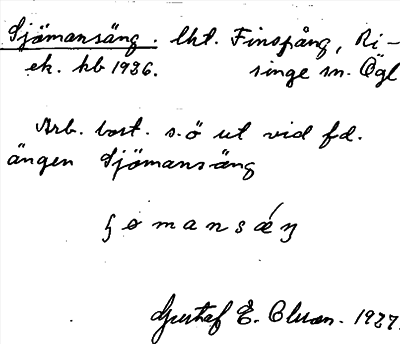 Sjömansäng. lht. Finspång, Ri-
ek. kb 1936. singe sn. Ögl
Arb. bost. s.ö ut vid f.d.
ängen Sjömansäng
Gustaf E. Olsson. 1937.